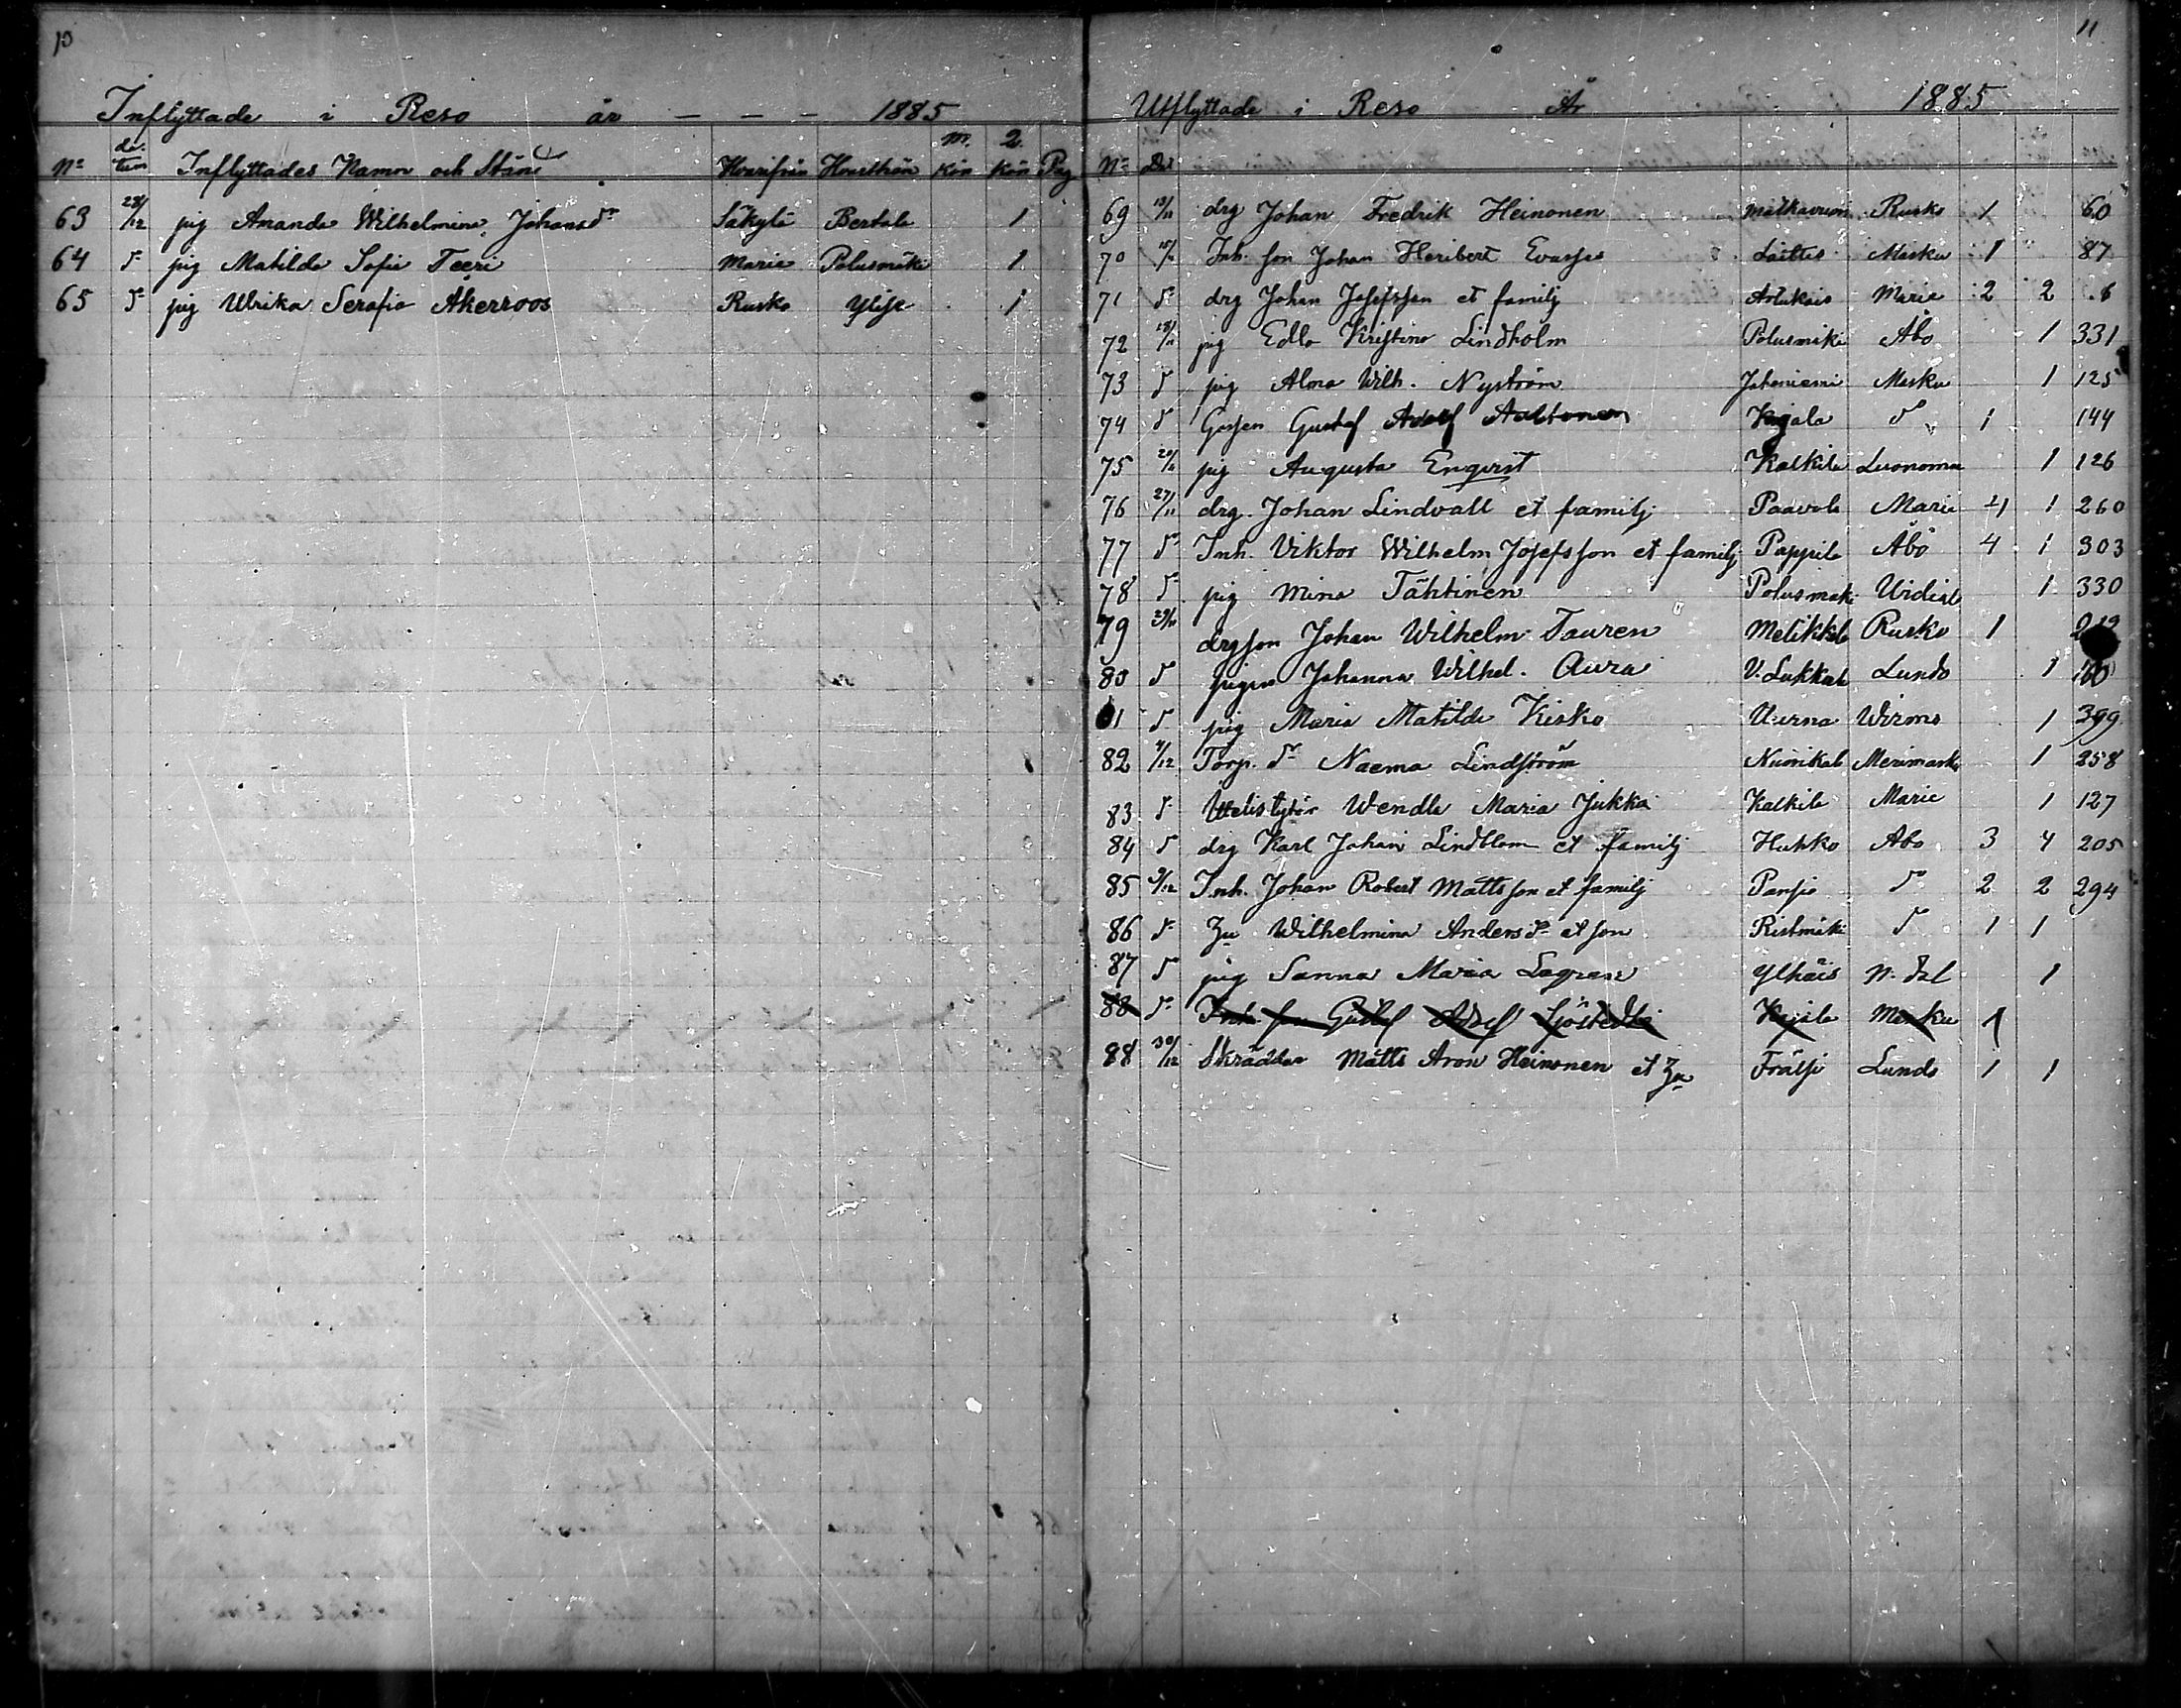 10
Inflyttade i Reso år - - - 1885
No da-tum Inflyttades Namn och Stånd Hvarifrån Hvarthän M. Kön Q. Kön Pag
63 28/12 pig Amanda Wilhelmina Johansdr Säkylä Bertala 1
64 do pig Matilda Sofia Teeri Marie Polusmäki 1
65 do pig Ulrika Serafia Akerroos Rusko 1
11
Utflyttade i Reso År 1885
No Dat
69 drg Johan Fredrik Heinonen Rusko 1 60
70 Inh. son Johan Heribert Masku 1 87
71 do drg Johan Josefsson et familj Artukais Marie 2 2 6
72 pig Edla Kristina Lindholm Polusmäki Åbo 1 331
73 do pig Alma Wilh. Nyström Masku 1 125
74 do Gossen Gustaf Adolf Aaltonen do 1 144
75 pig Augusta Enqvist Kalkila 1 126
76 27/11 drg. Johan Lindvall et familj Paavola Marie 4 1 260
77 do Inh. Viktor Wilhelm Josefsson et familj Pappila Åbo 4 1 303
78 do pig Mina Tähtinen Polusmäki 1 330
79 drgson Johan Wilhelm Tauren Rusko 1
80 do pigan Johanna Wilhel. Aura Lundo 1
do pig Maria Matilda Kisko Wirmo 1 399
82 4/12 Torp. dr Naema Lindström Merimasku 1 258
83 do Wendla Maria Jukka Kalkila Marie 1 127
84 do drg Karl Johan Lindblom et familj Huhko Åbo 3 4 205
85 9/12 Inh. Johan Robert Mattsson et familj Pansio do 2 2 294
86 do Wilhelmina Andersdr et son Ristmäki do 1 1
87 do pig Sanna Maria Lagren 1
88 do Inh. son Gustaf Adolf Masku 1
88 30/12 Skräddar Matts Aron Heinonen et Lundo 1 1